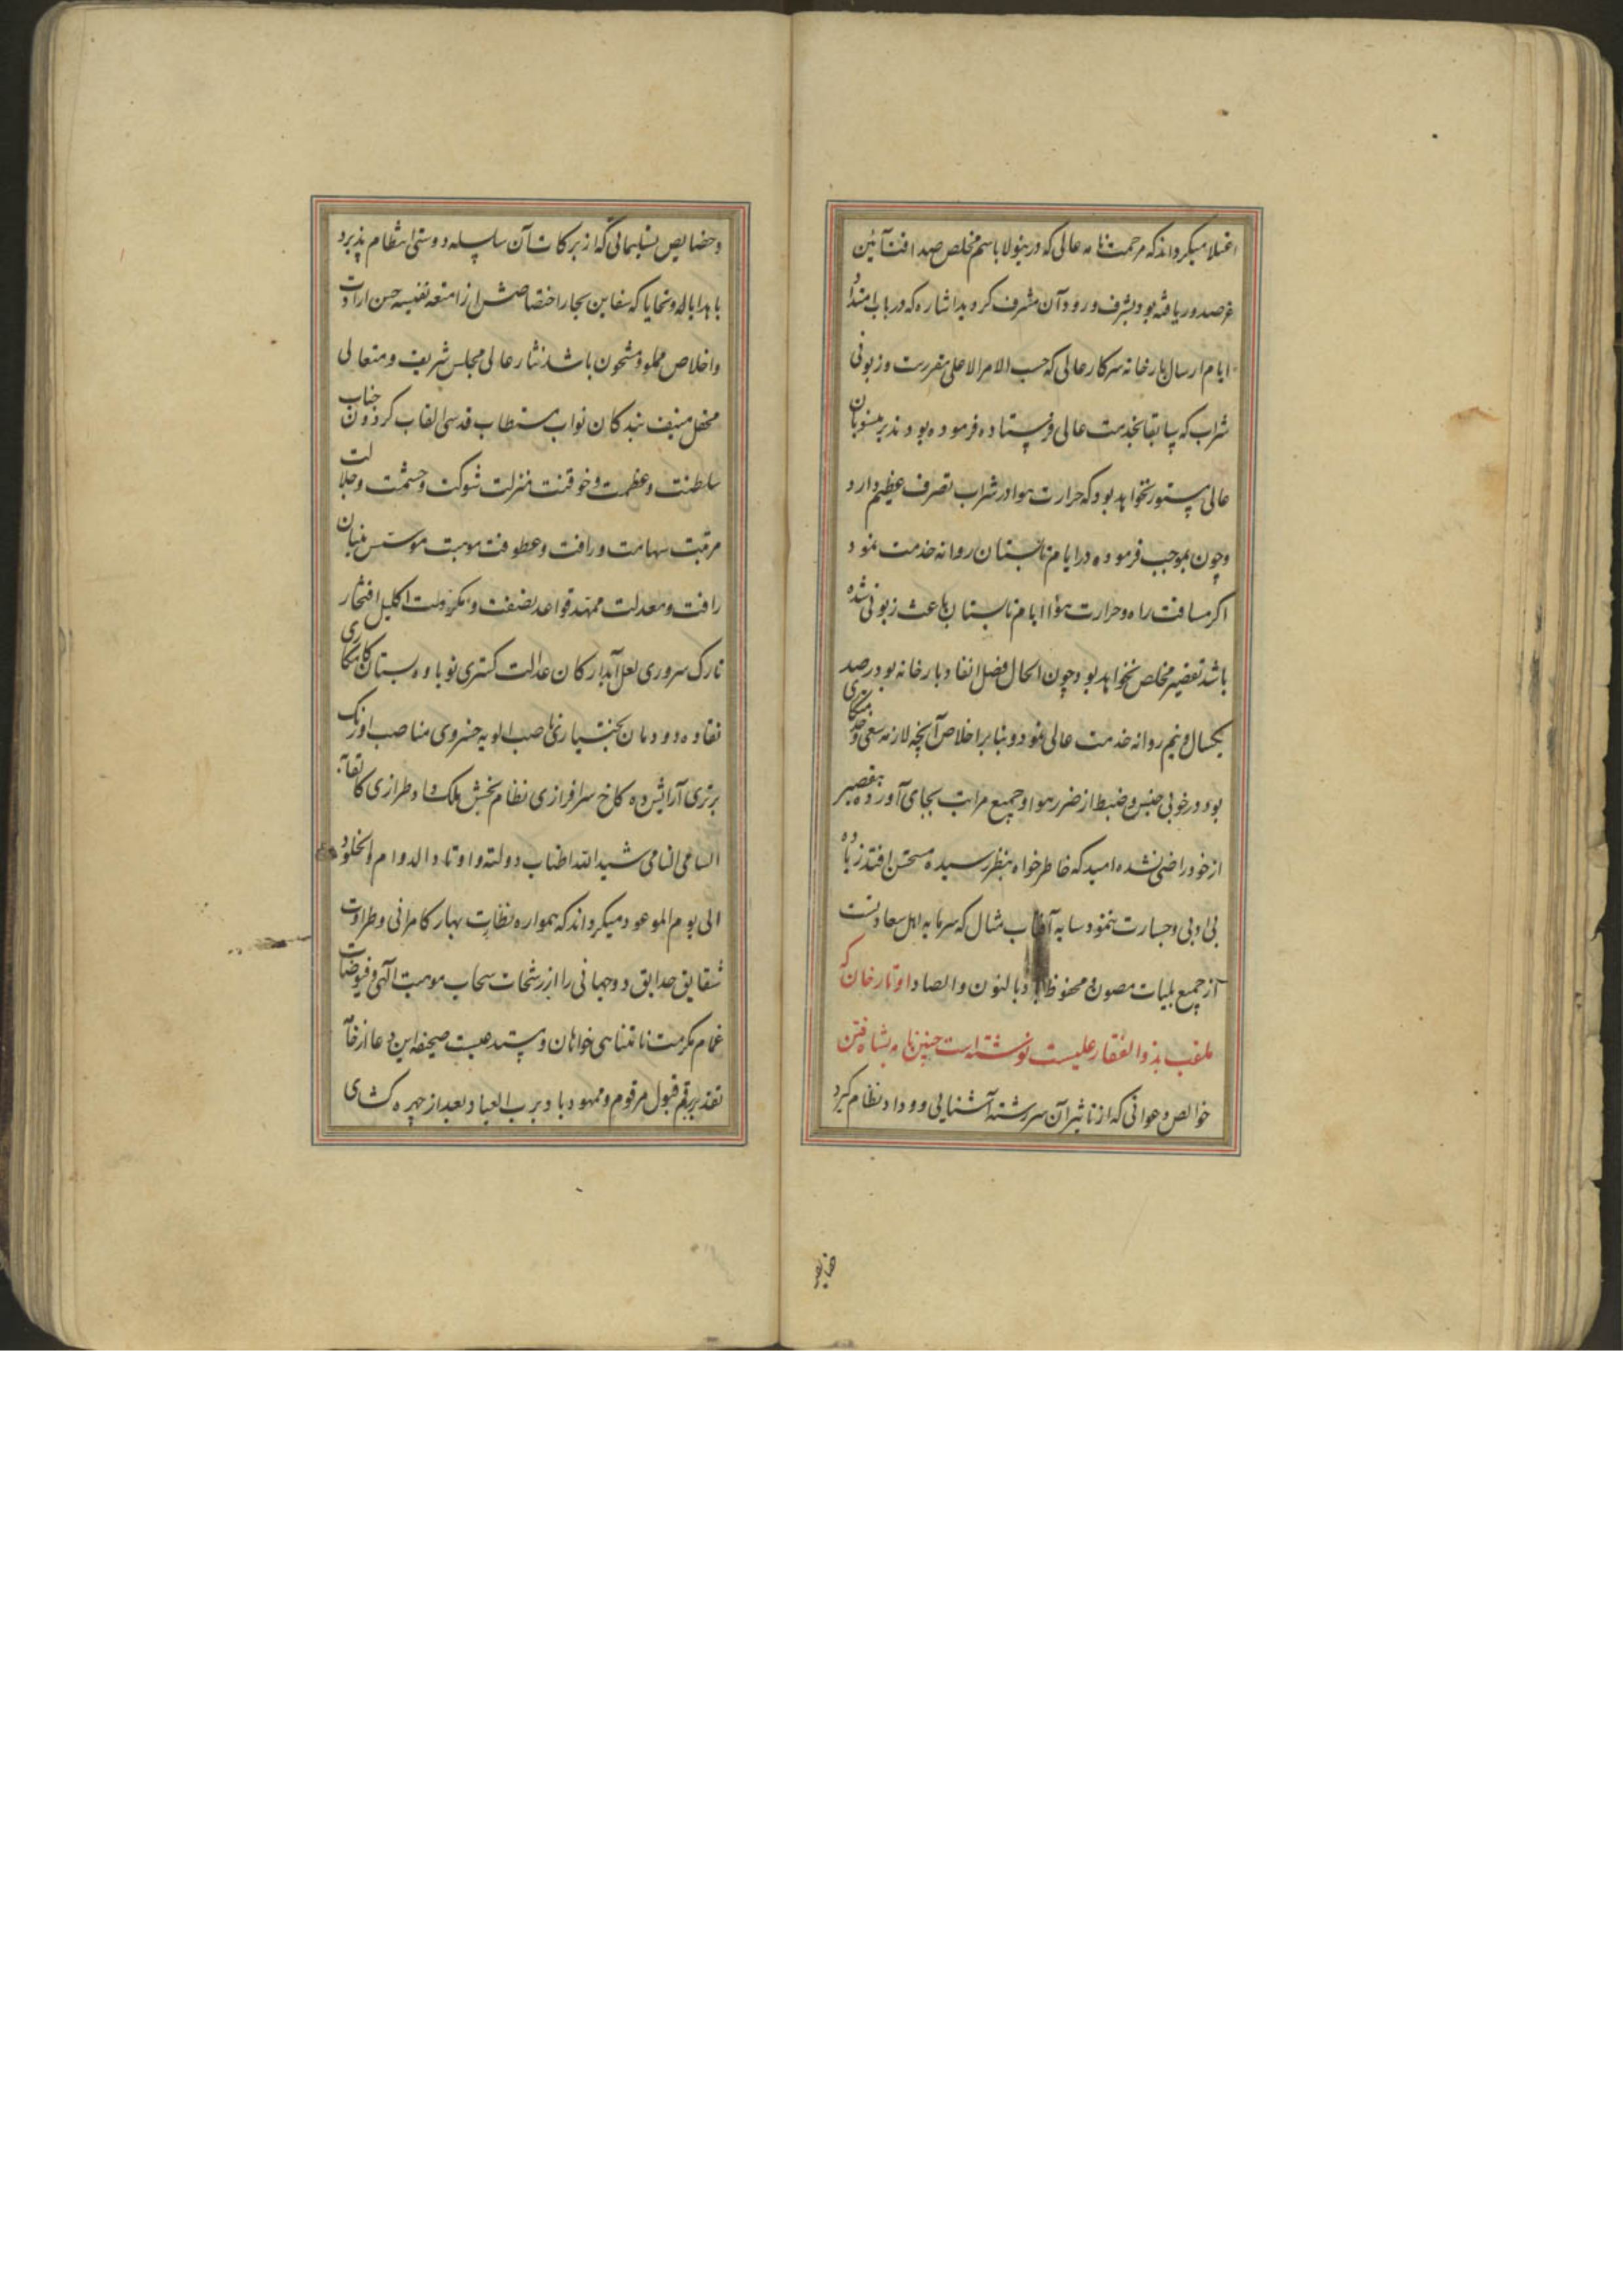 اعتلا میگرداند که مرحمت نامه عالی که درینولا باسم مخلص صداقت آئین
عز صدور یافته بود بشرف ورود آن مشرف گردید اشاره که در باب امتداد
ایام ارسال بارخانه سرکار عالی که حسب الامر الاعلی مقررست و زبونی
شراب که سابقا بخدمت عالی فرستاده فرموده بودند بر منسوبان
عالی مستور نخواهد بود که حرارت هوا در شراب تصرف عظیم دارد
و چون بموجب فرموده در ایام تابستان روانه خدمت نمود
اگر مسافت راه و حرارت هوا ایام تابستان باعث زبونی شده
باشد تقصیر مخلص نخواهد بود و چون الحال فصل انفاد بارخانه بود درصد
یکسال و نیم روانه خدمت عالی نمود و بنابر اخلاص آنچه لازمه سعی و خدمتکاری
بود در خوبی جنس و ضبط از ضرر هوا و جمیع مراتب بجای آورده بتقصیر
از خود راضی نشده امید که خاطرخواه بنظر رسیده مستحسن افتد زیاده
بی ادبی و جسارت ننمود سایه آفتاب مثال که سرمایه اهل سعادتست
از جمیع بلیات مصون و محفوظ باد بالنون و الصاد اوتارخان که
ملقب بذوالفقار علیست نوشته است چنین نامه بشاه فتن
خوالص دعوانی که از تاثیر آن سررشته آشنایی و وداد نظام گیرد
خصایص
و خصایص تسلیماتی که از برکات آن سلسله دوستی انتظام پذیرد
با هدایا له و تحایا که سفاین بحار اختصاصش از امتعه نفیسه حسن ارادت
و اخلاص مملو و مشحون باشد نثار عالی مجلس شریف و متعالی
محفل منیف بندگان نواب مستطاب قدسی القاب گردون جناب
سلطنت و عظمت و خوقنت منزلت شوکت و حشمت و جلالت
مرتبت شهامت و رافت و عطوفت موهبت موسس بنیان
رافت و معدلت ممهد قواعد نصفت و مکرمت اکلیل افتخار
تارک سروری لعل آبدار کان عدالت گستری نوباوه بستان کامکاری
نقاوه دودمان بختیاری ناصب الویه خسروی مناصب اورنگ
برتری آرائش ده کاخ سرافرازی نظام بخش ملک و طرازی کاتقابه
السامی النامی شید الله اطناب دولته و اوتاد الدوام و الخلود
الی یوم الموعود میگرداند که همواره نظارت بهار کامرانی و طراوت
شقایق حدایق دوجهانی را از رشحات سحاب موهبت آلهی و فیوضات
غمام مکرمت نامتناهی خواهان و مستدعیست صحیفه این دعا از خامه
تقدیر برقم قبول مرقوم و ممهود باد برب العباد بعد از چهره کشای